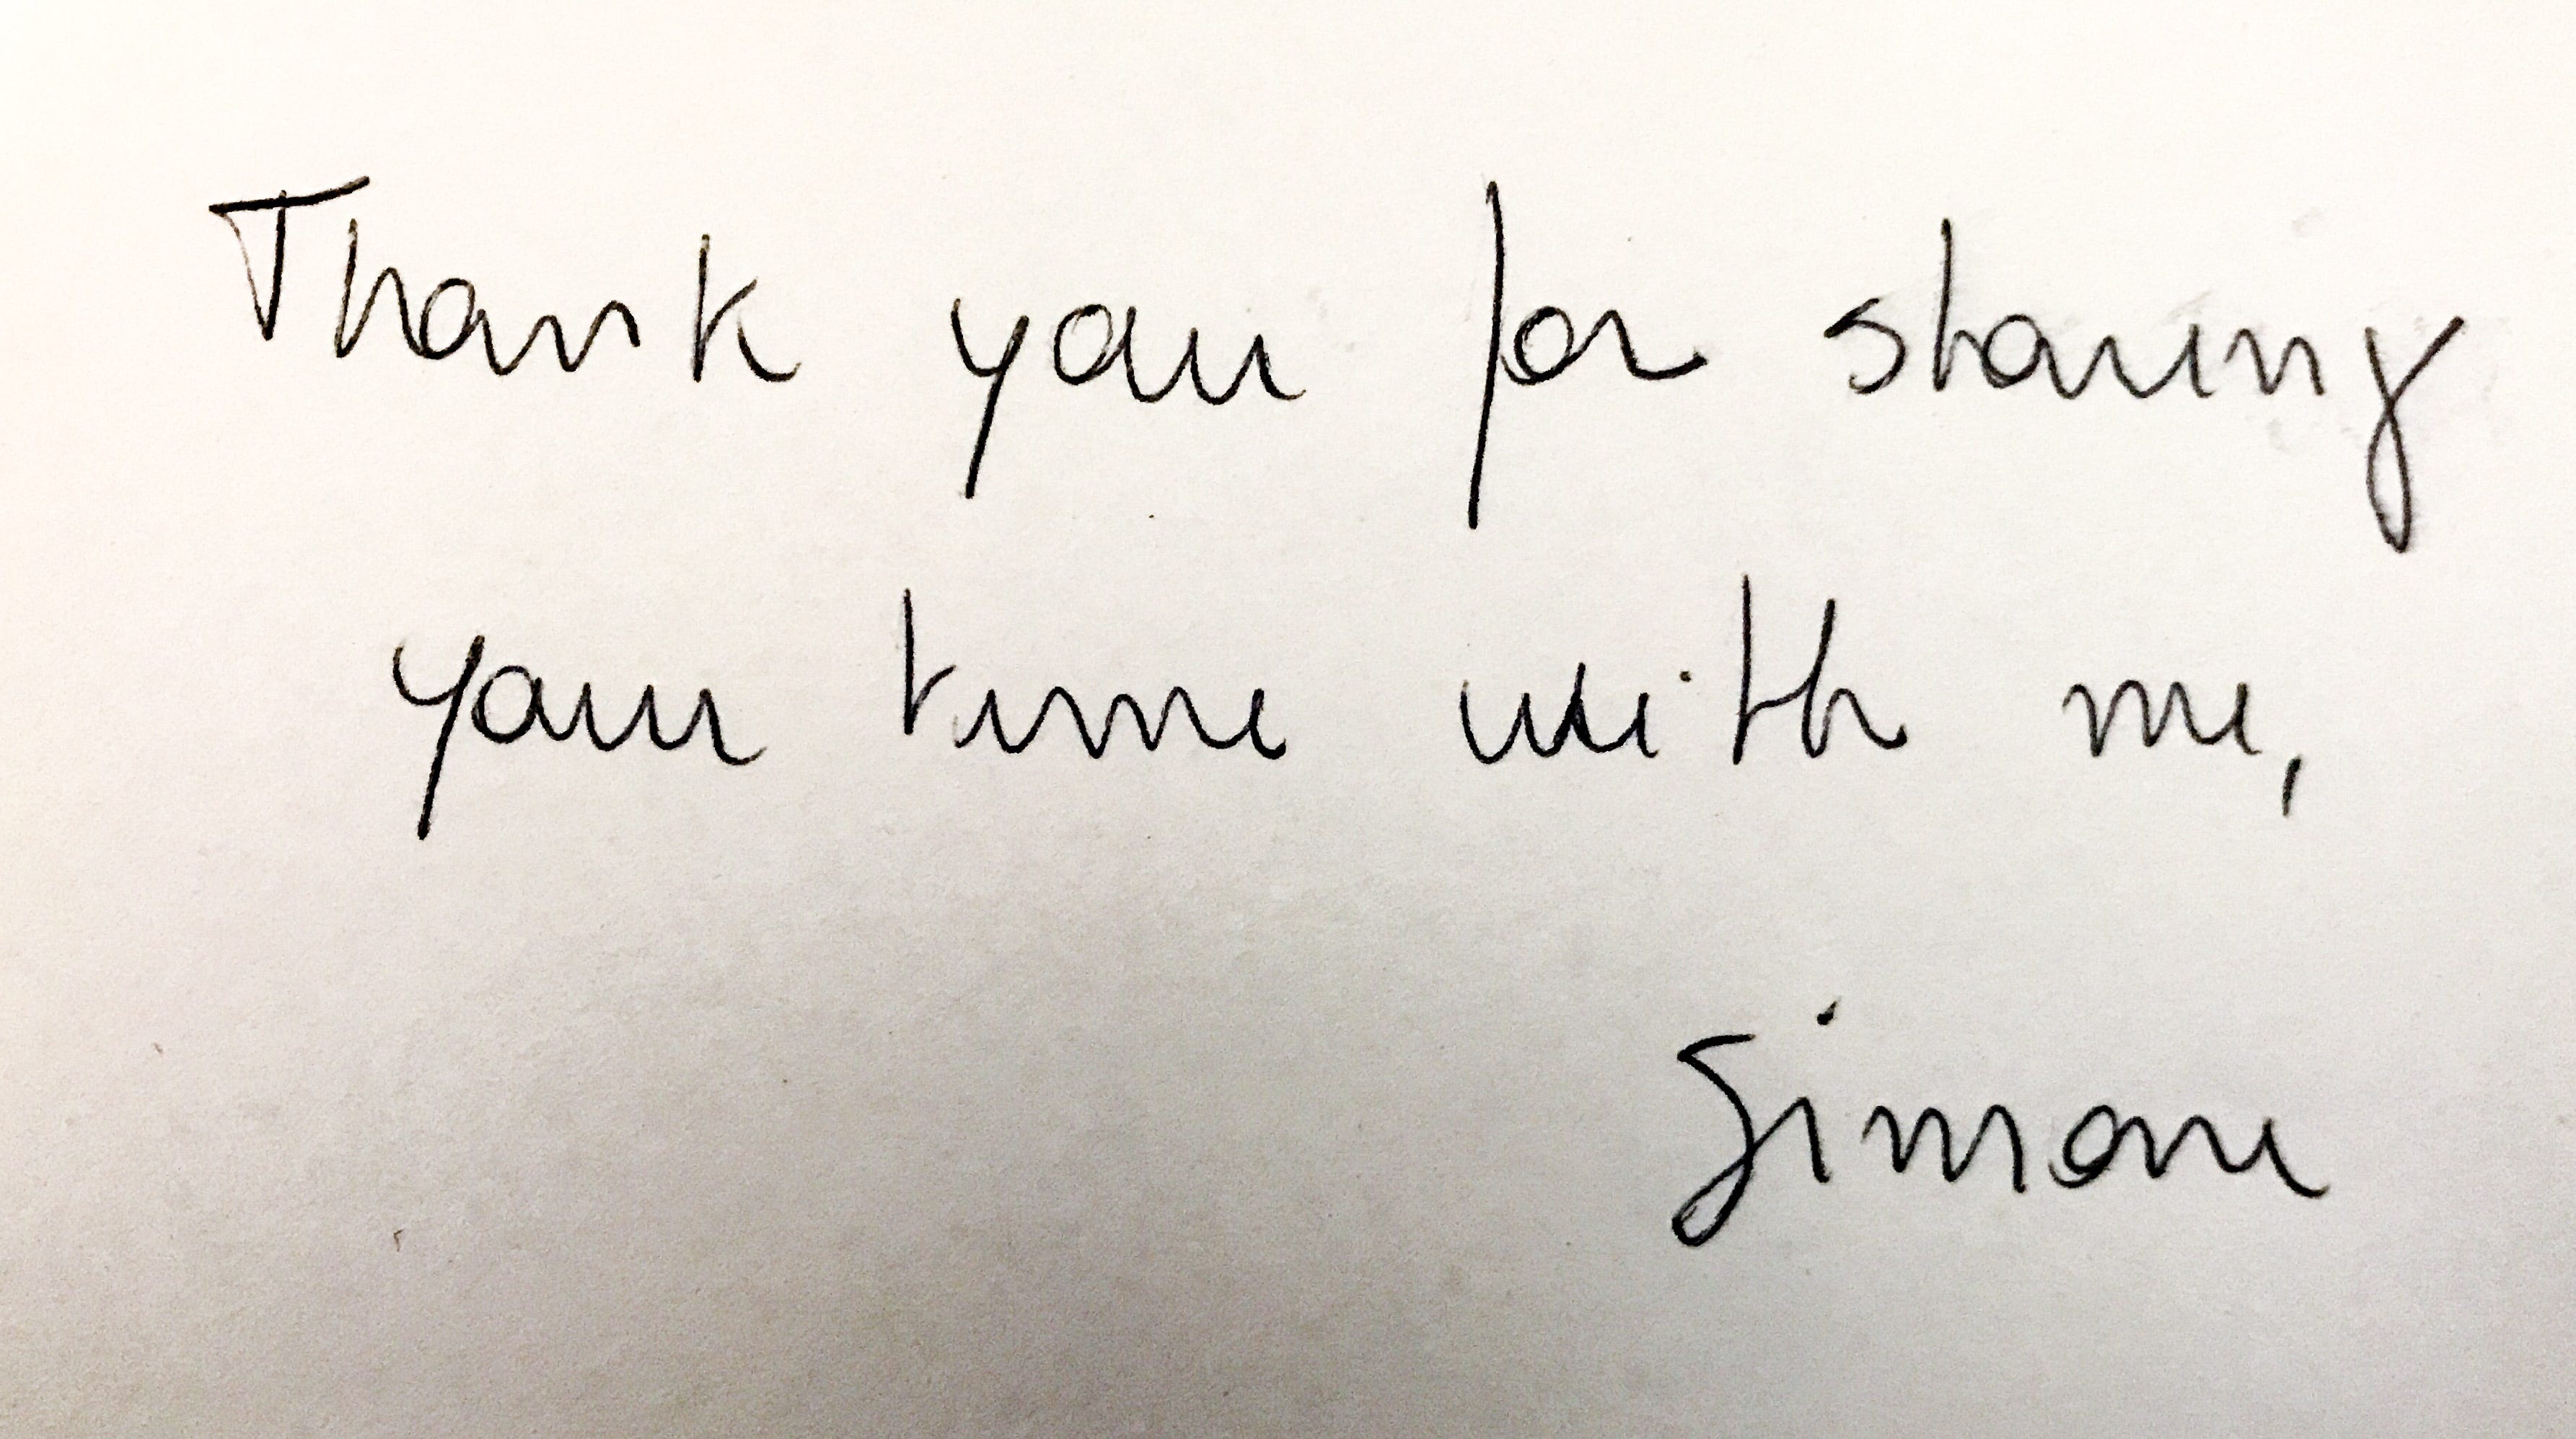 Thank you for sharing
your time with me,
Simone